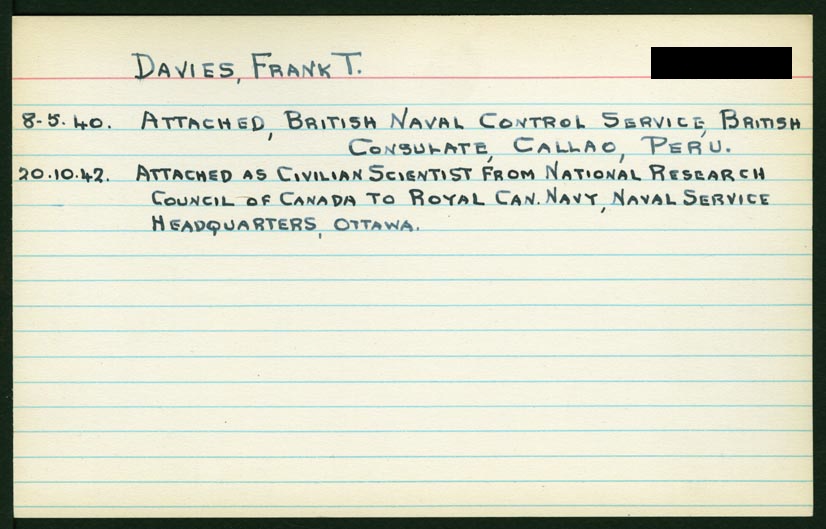 DAVIES, FRANK T.
8-5.40. ATTACHED, BRITISH NAVAL CONTROL SERVICE, BRITISH
CONSULATE, CALLAO, PERU.
20.10.42. ATTACHED AS CIVILIAN SCIENTIST FROM NATIONAL RESEARCH
COUNCIL OF CANADA TO ROYAL CAN. NAVY, NAVAL SERVICE
HEADQUARTERS, OTTAWA.